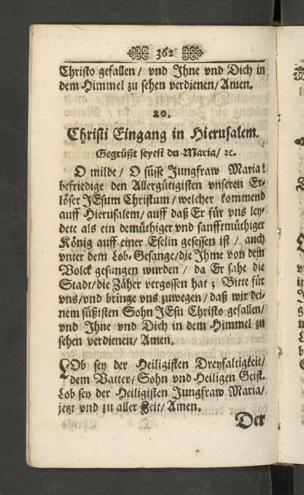 362
Christo gefallen/ vnd Ihne vnd Dich in
dem Himmel zu sehen verdienen/ Amen.
20.
Christi Eingang in Hierusalem.
Gegrüßt seyest du Maria/ ꝛc.
O milde/ O süsse Jungfraw Maria!
befriedige den Allergütigisten vnseren Er-
löser JEsum Christum/ welcher kommend
auff Hierusalem/ auff daß Er für vns ley-
dete als ein demüthiger vnd sanfftmüthiger
König auff einer Eselin gesessen ist/ auch
vnter dem Lob-Gesange/ die Ihme von dem
Volck gesungen wurden/ da Er sahe die
Stadt/ die Zäher vergossen hat; Bitte für
vns/ vnd bringe vns zuwegen/ daß wir dei-
nem süßisten Sohn JEsu Christo gefallen/
vnd Ihne vnd Dich in dem Himmel zu
sehen verdienen/ Amen.
LOb sey der Heiligisten Dreyfaltigkeit/
dem Vatter/ Sohn vnd Heiligen Geist.
Lob sey der Heiligisten Jungfraw Maria/
jetzt vnd zu aller Zeit/ Amen.
Der